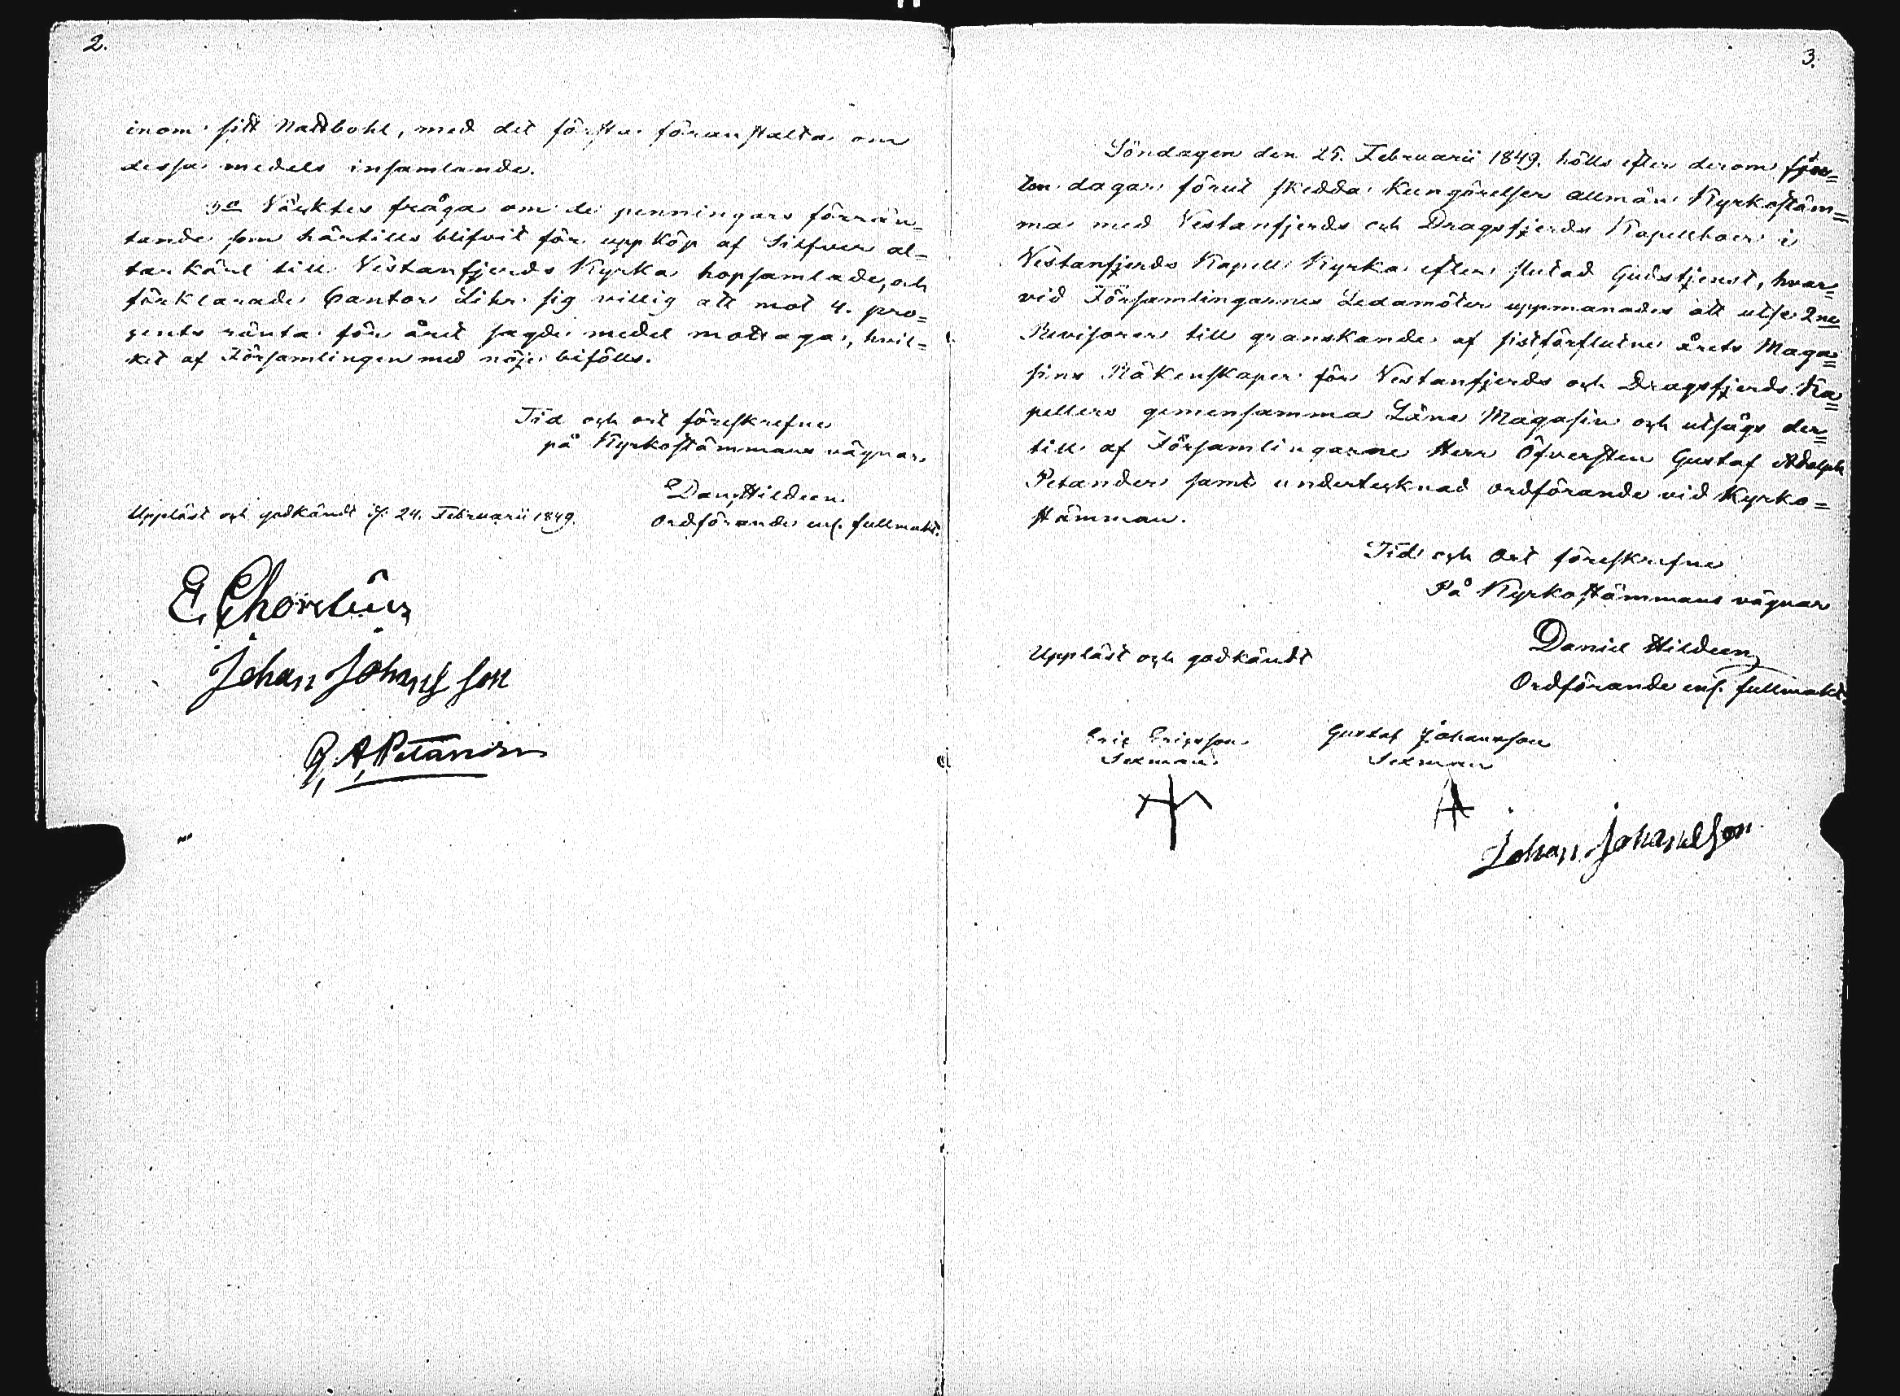 2.
inom sitt Nattbohl, med det första föranstalta om
dessa medels insamlande.
3o Väcktes fråga om de penningars förrän-
tande som härtills blifvit för uppköp af Silfver al-
tarkärl till Vestanfjerds Kyrka hopsamlade, och
förklarade Cantor sig villig att mot 4. pro=
cents ränta för året sagde medel mottaga, hvil-
ket af Församlingen med nöje bifölls.
Tid och ort föreskrefne
på Kyrkostämmans vägnar
Dan. Hildeen
Ordförande enl. fullmakt.
Uppläst och godkändt d. 24. Februarii 1849.
E. Chorelius
Johan Johansson
G. A. Petander
3.
Söndagen den 25. Februarii 1849. hölls efter derom fjor=
ton dagar förut skedda Kungörelser allmän Kyrkostäm=
ma med Vestanfjerds och Dragsfjerds Kapellboer i
Vestanfjerds Kapell Kyrka efter slutad Gudstjenst, hvar=
vid Församlingarnes Ledamöter uppmanades att utse 2ne
Revisorer till granskande af sistförflutne årets Maga=
sins Räkenskaper för Vestanfjerds och Dragsfjerds Ka=
pellers gemensamma Låne Magasin och utsågs der=
till af Församlingarne Herr Öfversten Gustaf Adolph
Petander samt undertecknad ordförande vid Kyrko=
stämman.
Tid och Ort föreskrefne
På Kyrkostämmans vägnar
Daniel Hildeen
Ordförande enl. fullmakt.
Uppläst och godkändt
Eric Ericsson Gustaf Johansson
Sexman Sexman
Johan Johansson